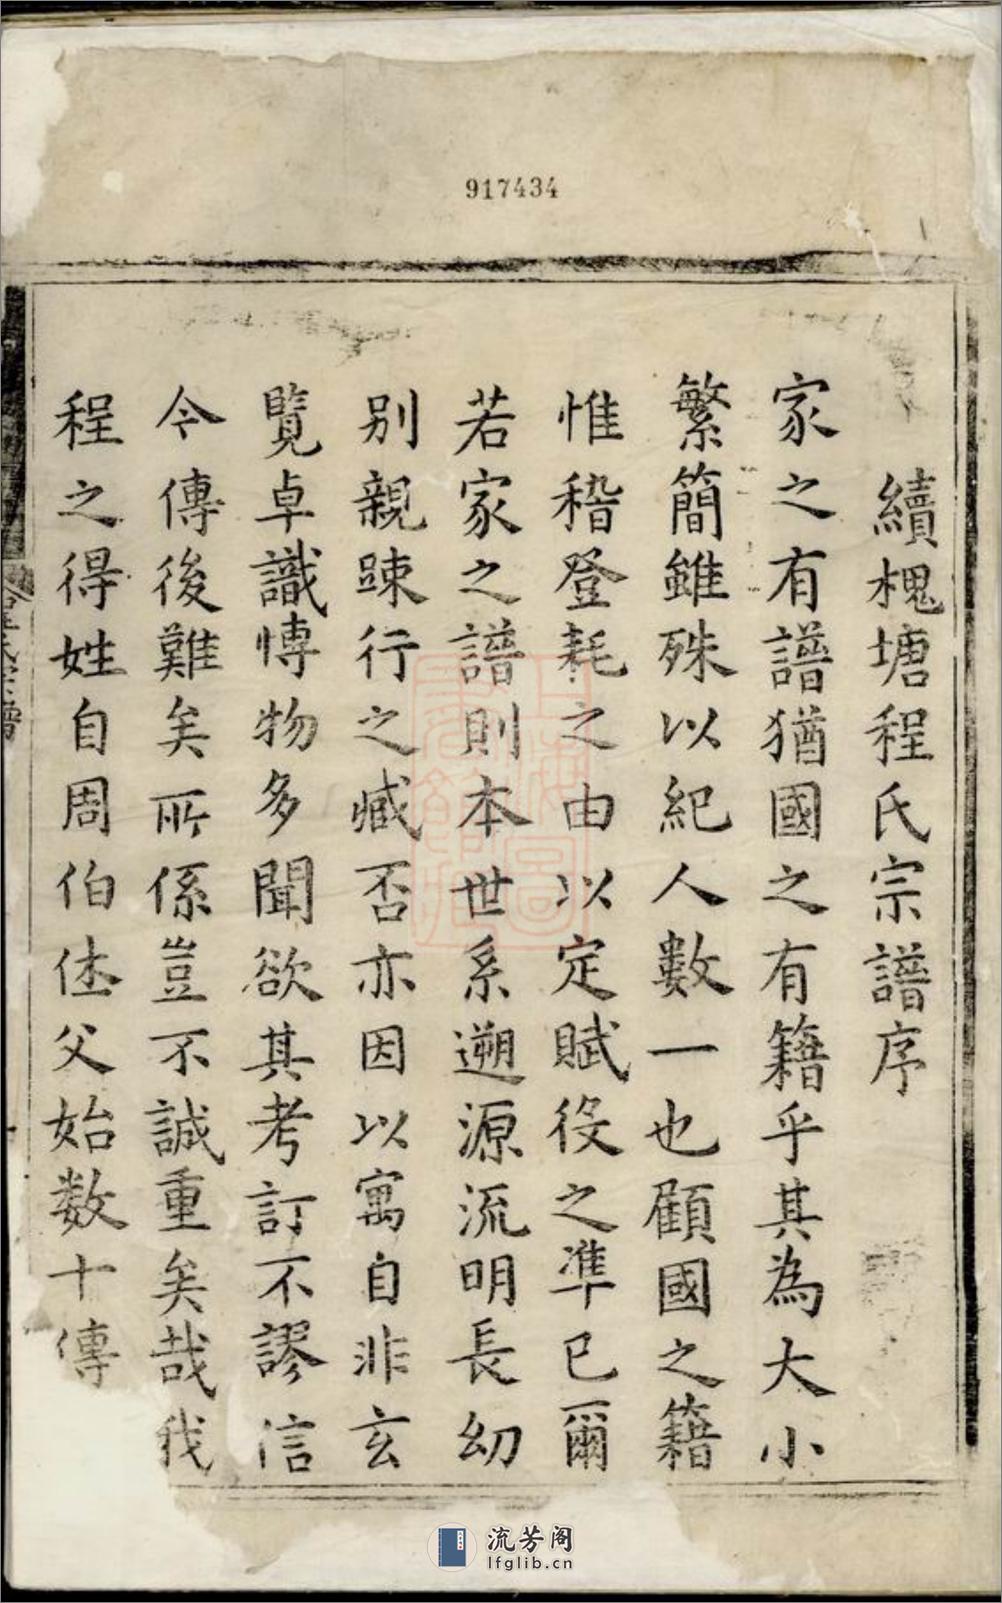 917434
續槐塘程氏宗譜序
家之有譜猶國之有籍乎其為大小
繁簡雖殊以紀人數一也顧國之籍
惟稽登耗之由以定賦役之準已爾
若家之譜則本世系遡源流明長幼
別親踈行之臧否亦因以寓自非玄
覽卓識愽物多聞欲其考訂不謬信
今傳後難矣所係豈不誠重矣哉我
程之得姓自周伯休父始数十傳
流芳阁
lfglib.cn